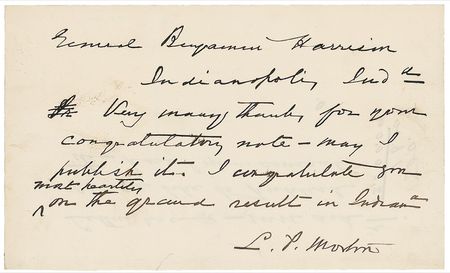 General Benjamin Harrison
Indianapolis, Ind^a
Very many thanks for your
congratulatory note - may I
publish it. I congratulate you
most heartily
on the grand result in Indiana
L. P. Morton